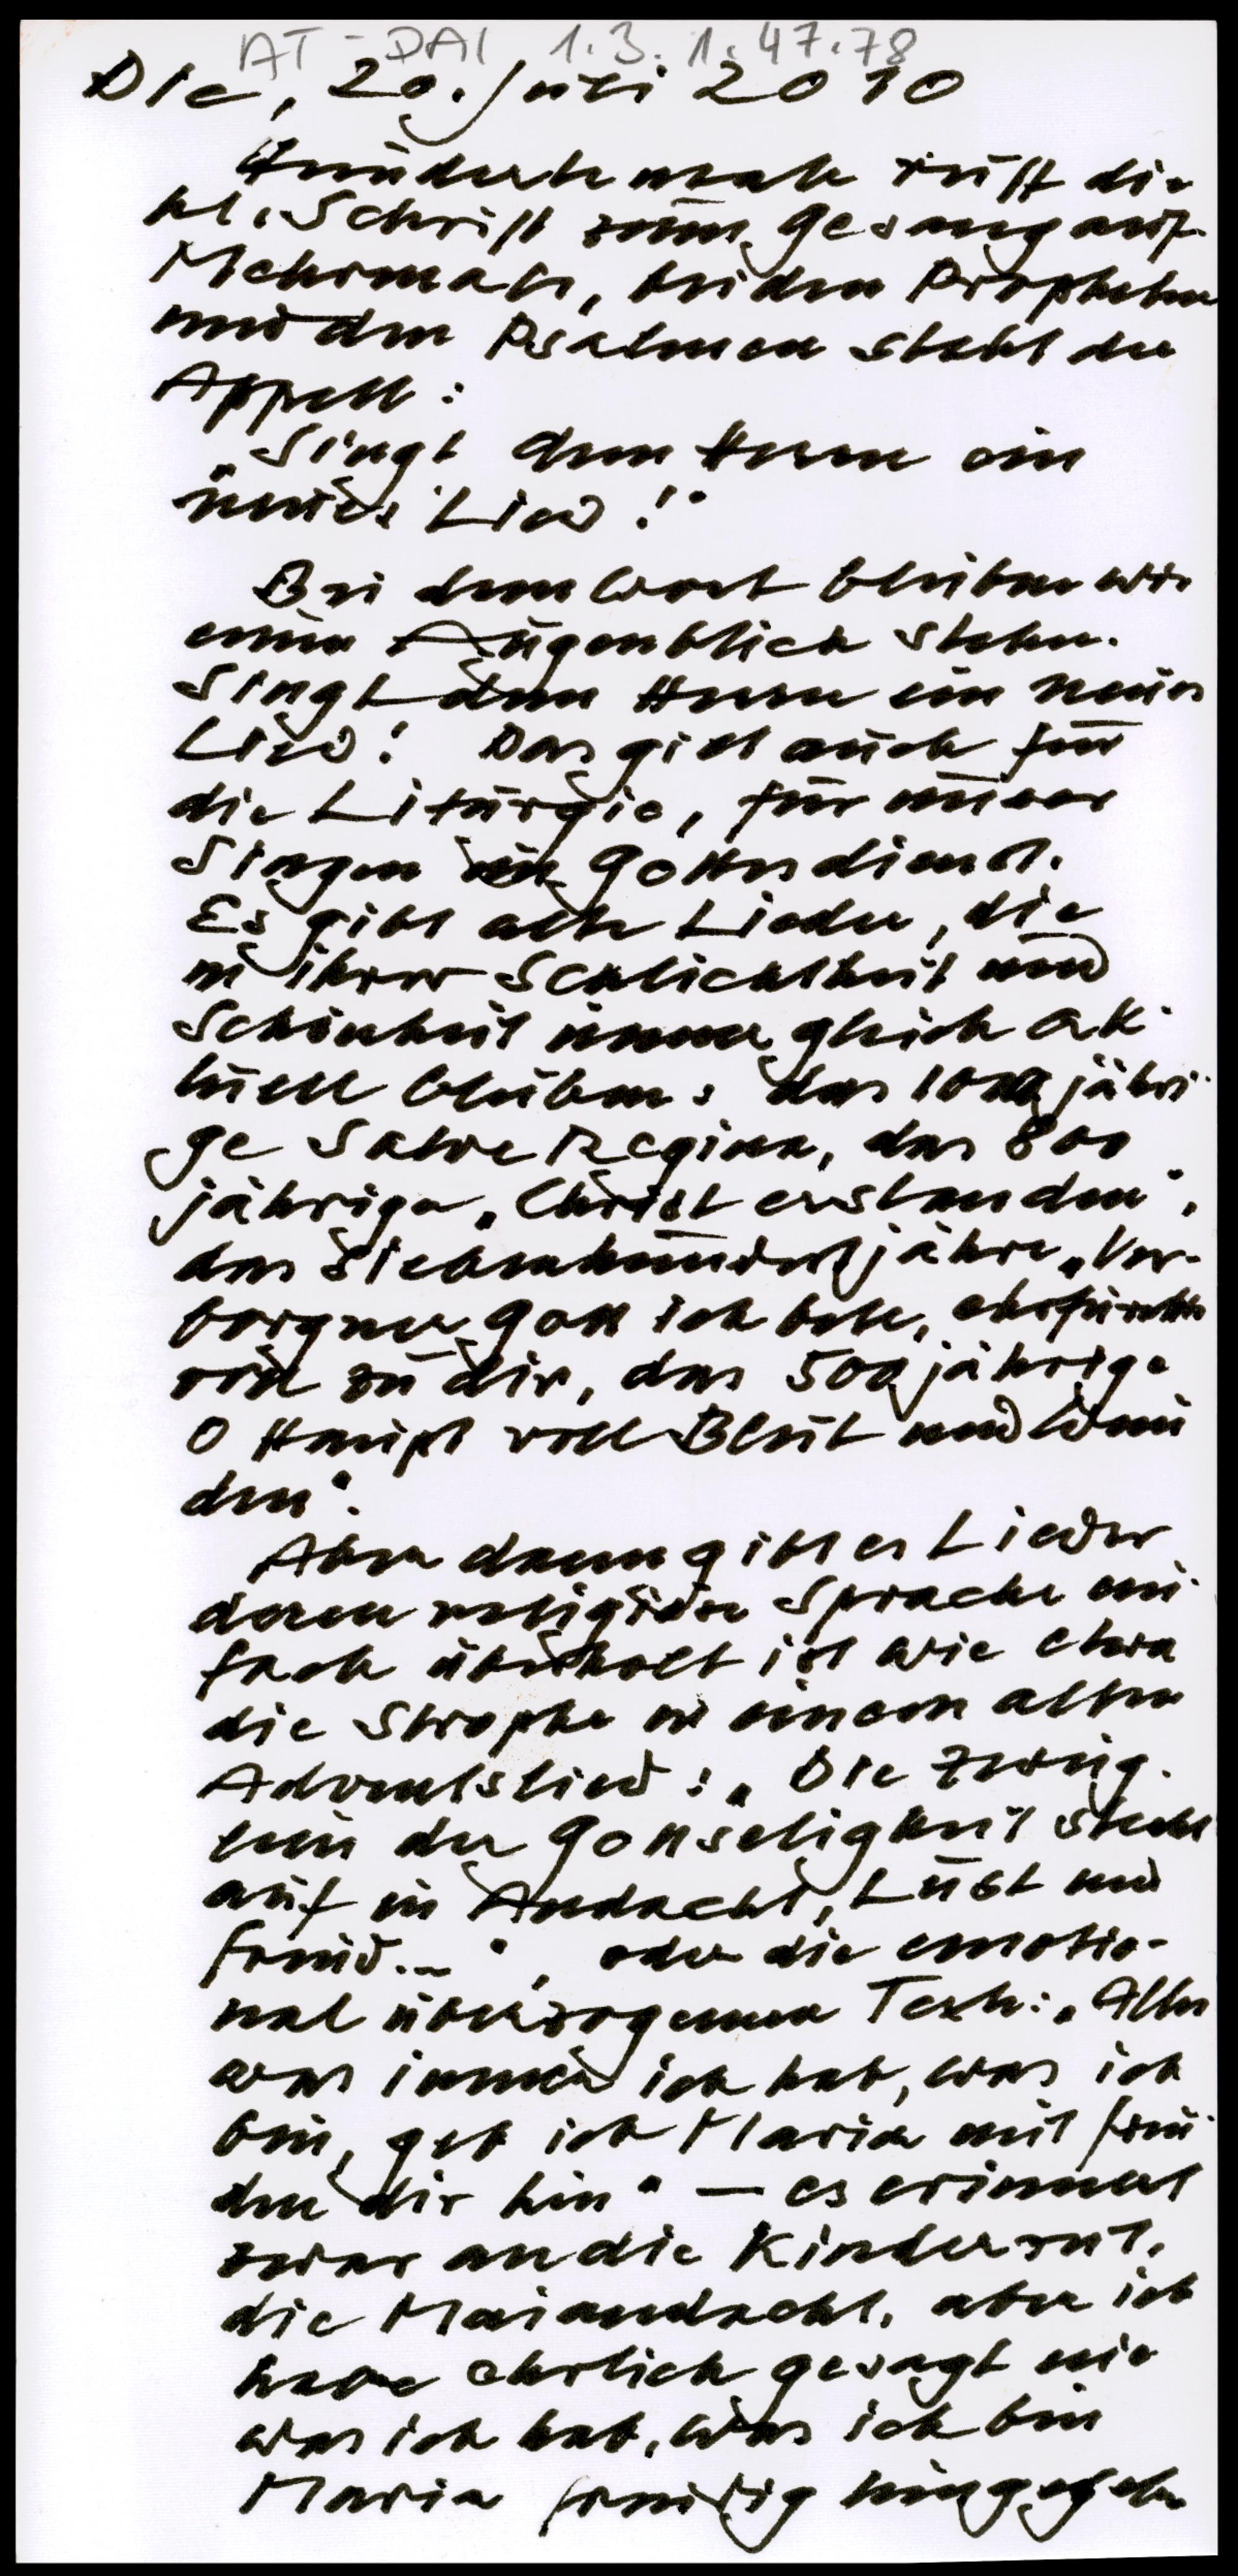 AT-DAI 1.3.1.47.78
Die, 20. Juli 2010
Hundertemale ruft die
hl. Schrift zum Gesang auf.
Mehrmals, bei den Propheten
und den Psalmen steht der
Appell:
„Singt dem Herrn ein
neues Lied!"
Bei dem Wort bleiben wir
einen Augenblick stehen.
Singt dem Herrn ein neues
Lied! Das gilt auch für
die Liturgie, für unser
Singen im Gottesdienst.
Es gibt alte Lieder, die
in ihrer Schlichtheit und
Schönheit immer gleich ak-
tuell bleiben: das 1000 jähri-
ge Salve Regina, das 800
jährige „Christ erstanden",
das siebenhundertjähre „Ver-
borgner Gott ich bete, ehrfürchts
voll zu dir, das 500 jährige
O Haupt voll Blut und Wun
den".
Aber dann gibt es Lieder
deren religiöse Sprache ein-
fach überholt ist wie etwa
die Strophe in einem alten
Adventslied: „Die Zweig-
lein der Gottseligkeit steckt
auf in Andacht, Lust und
Freud...", oder die emotio-
nal überzogenen Texte: „Alles
was immer ich hab, was ich
bin, geb ich Maria mit Freu-
den dir hin" – es erinnert
zwar an die Kinderzeit,
die Maiandacht, aber ich
habe ehrlich gesagt nie
was ich hab, was ich bin
Maria freudig hingegeben